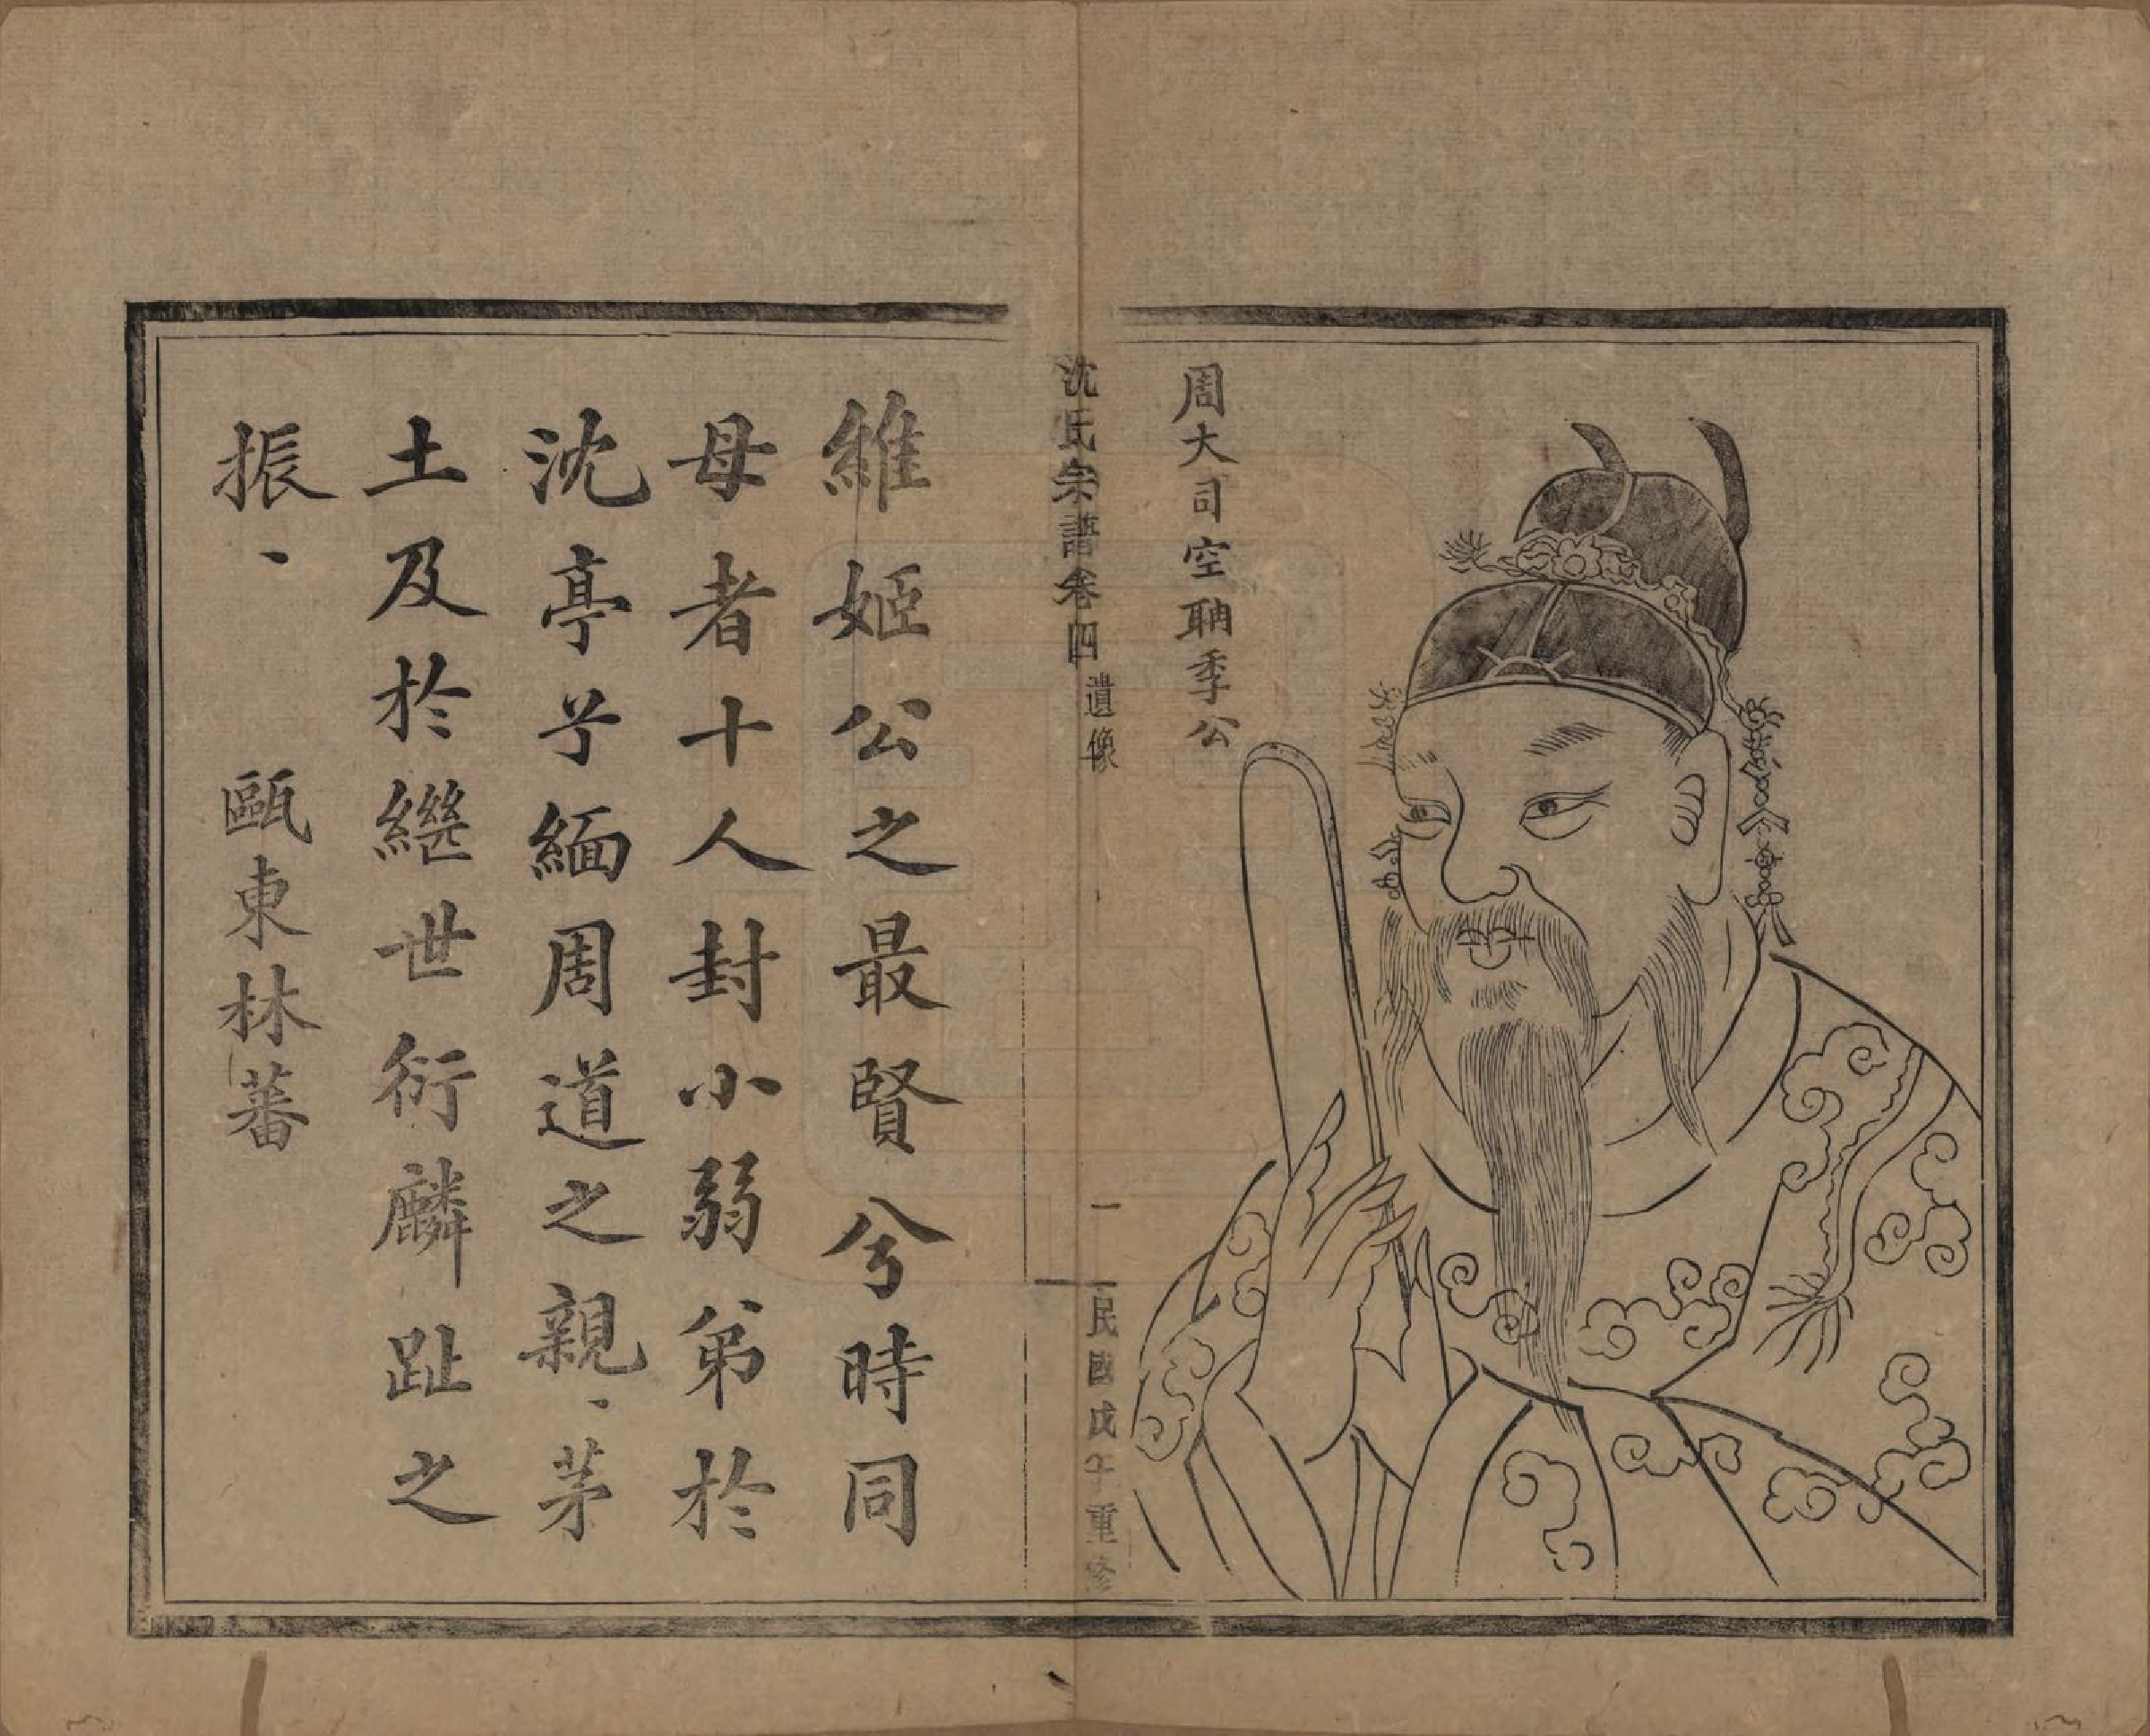 周大司空聃季公
沈氏宗譜卷四
遺像
一
民國戊午重修
維姬公之最賢兮時同
母者十人封小弱弟於
沈亭兮緬周道之親、茅
土及於繼世衍麟趾之
振、 甌東林蕃